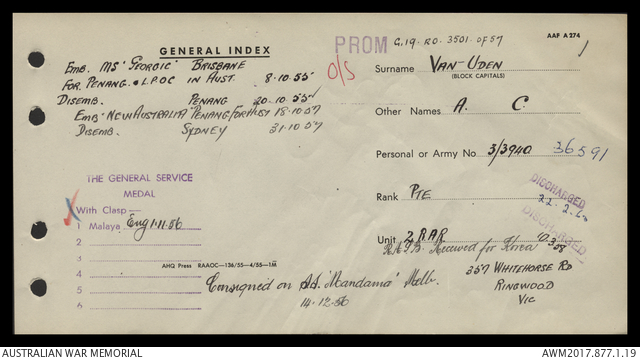 GENERAL INDEX
PROM
G.19. RO. 3501. OF 57
AAF A 274
1
Emb. MS "GEORGIC" BRISBANE
FOR PENANG. L.P.O.C IN AUST. 8-10-55
DISEMB. PENANG 20-10-55
EMB. NEW AUSTRALIA PENANG FOR AUST 18-10-57
DISEMB. SYDNEY 31-10-57
O/S
Surname VAN-UDEN
(BLOCK CAPITALS)
Other Names A. C.
Personal or Army No 3/3940 36591
Rank PTE
DISCHARGED
22-2-6
DISCHARGED
Unit 2 RAR
Received for Korea
357 WHITEHORSE RD
RINGWOOD
VIC
THE GENERAL SERVICE
MEDAL
X With Clasp
1 Malaya Eng 1-11-56
2
3
4
5
6
AHQ Press RAAOC—136/55—4/55—1M
Consigned on S.S. 'Mandama' Melb.
14-12-56
AUSTRALIAN WAR MEMORIAL
AWM2017.877.1.19